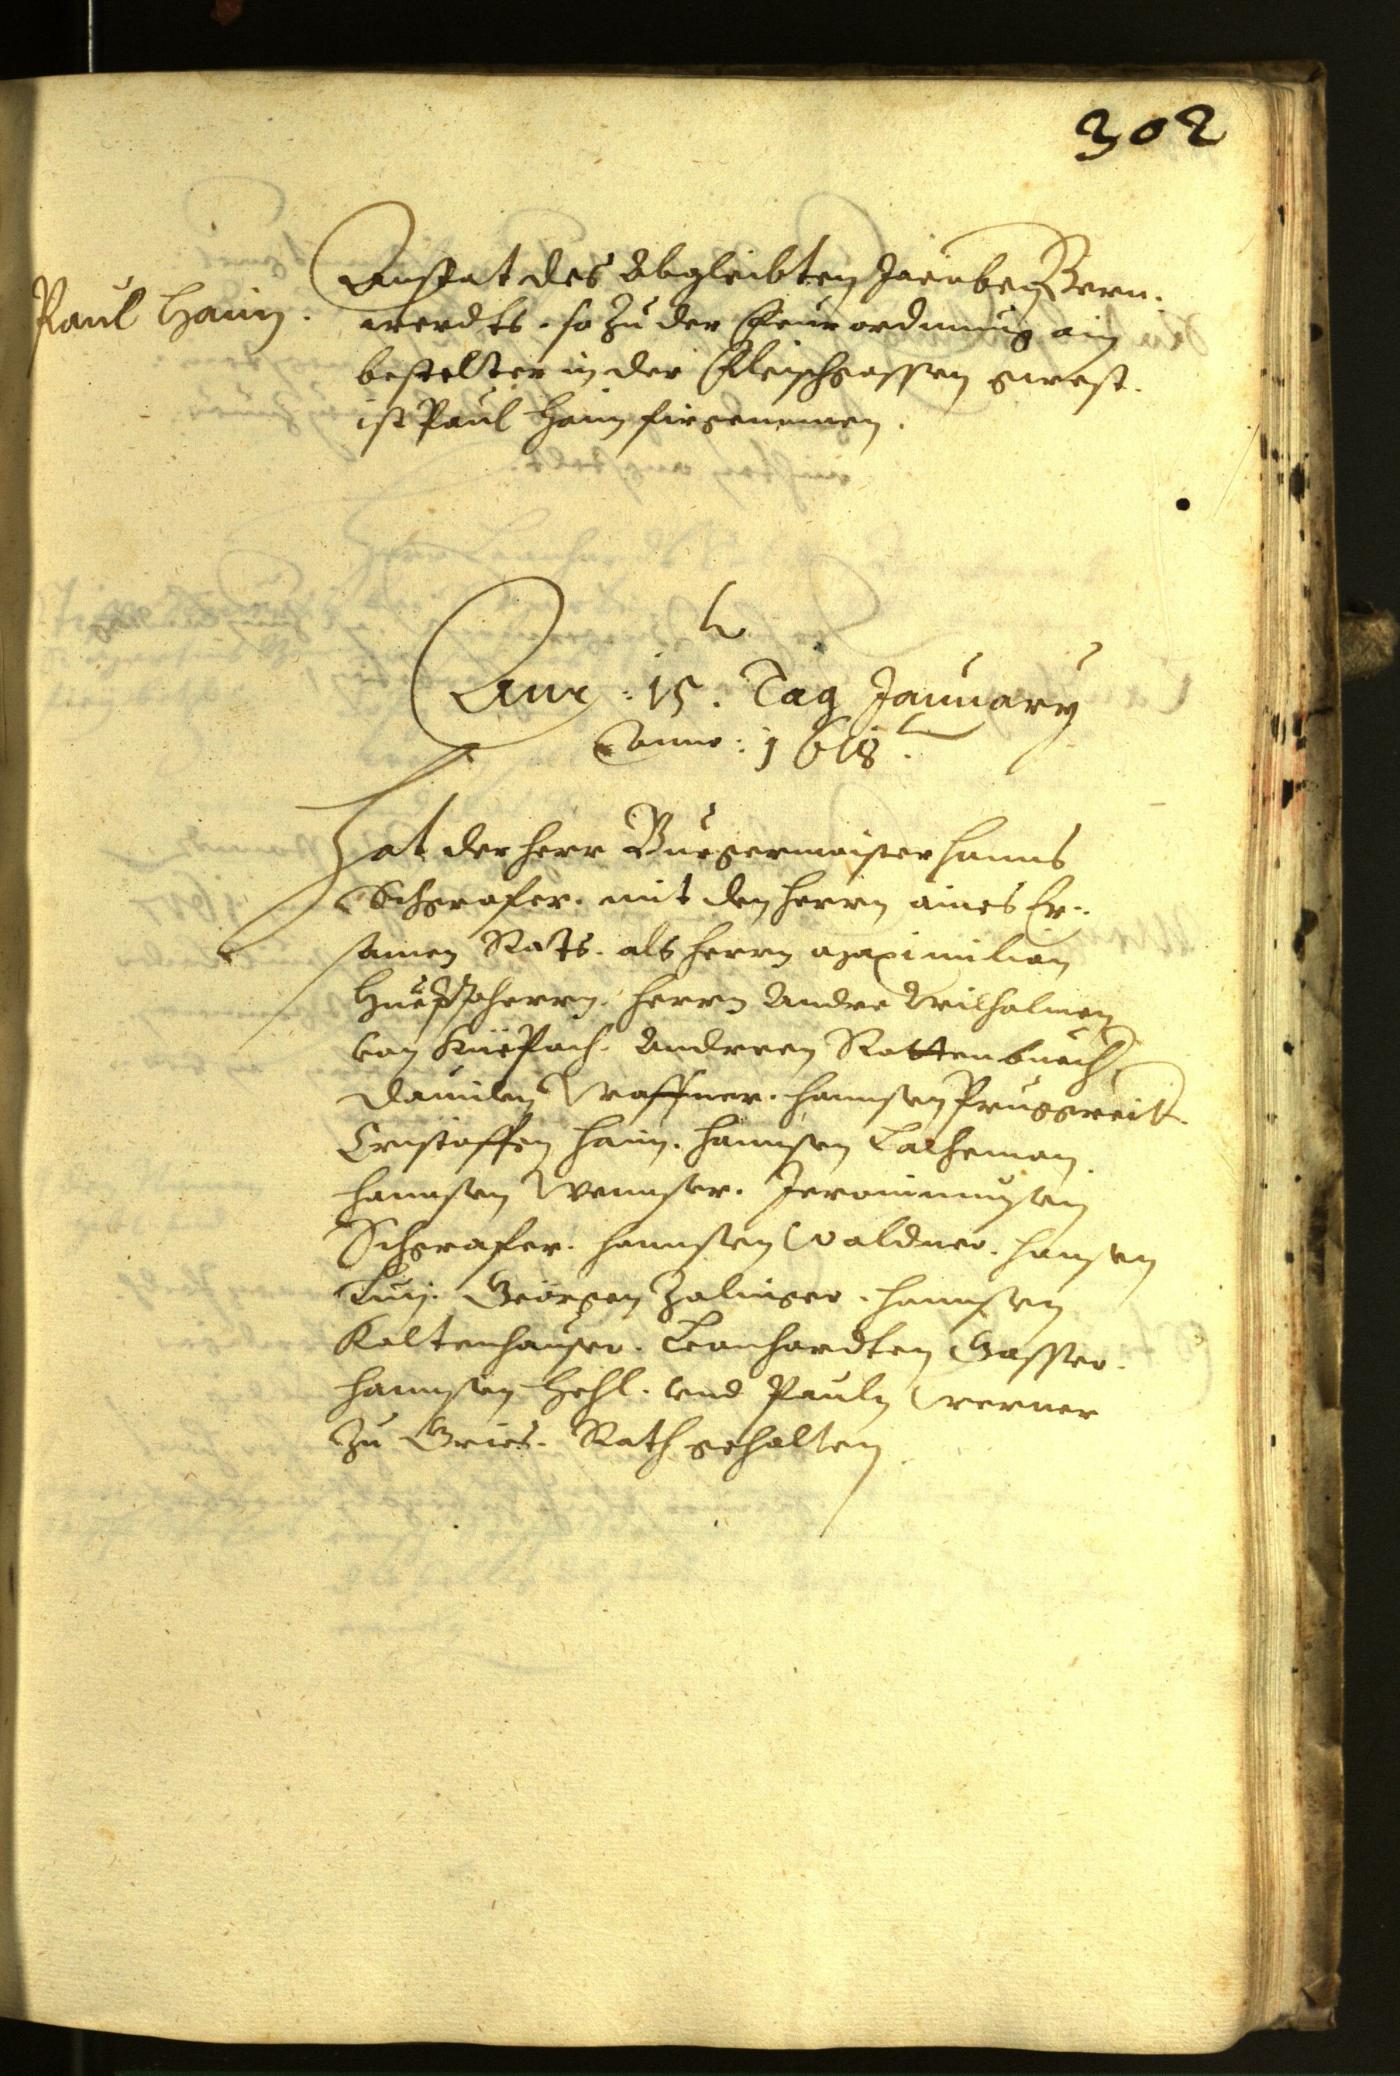 302
Paul Hain.
Anstat des Abgleibten Jacoben Bern-
werdts. so zu der Feurordnung ain
bestelter in der Fleischgassen gwest.
ist Paul Hain firgenomen.
Am: 15. Tag January
Anno: 1618.
Hat der herr Burgermaister Hanns
Schgrafer. mit den herrn aines Er-
samen Rats. als herrn Maximilian
herrn. herrn Andre Wilhalmen
von Küepach. Andreen Rottenbuech.
Daniln Hannsen Prugreit.
Cristoffen Hain. Hannsen Lacheman.
Hannsen Wennser. Jeronimusen
Schgrafer. Hannsen Waldner. Hansen
Georgen Zalinger. Hannsen
Kaltenhauser. Leonhardten Gasser.
Hannsen Hehl. vnd Pauln Werner
zu Gries. Rath gehalten.